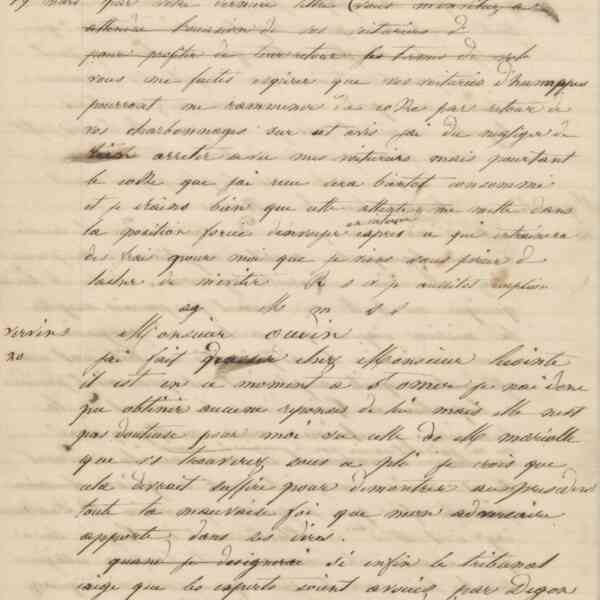 19 mars par votre dernière lettre
pour profiter de leur retour de
vous me faites espérer que vos voituriers d'hurnappes
pourront me rammener du coke par retour de
vos charbonnages sur cet avis j'ai du negliger de
arreter avec mes voituriers mais pourtant
le coke que j'ai reçu sera bientot consommé
et je crains bien que cette attente me mette dans
la position forcée d'envoyer expres ce que entrainera
des frais pour moi que je viens vous prier de
tacher de m'eviter
ag M m s s
Vervins Monsieur
20 j'ai fait chez Monsieur Lecointe
il est en ce moment a St omer je n'ai donc
pu obtenir aucune reponse de lui mais elle n'est
pas douteuse pour moi vu celle de M mariolle
que s's trouverez sous ce pli je crois que
cela devrait suffire pour demontrer
toute la mauvaise foi que mon adversaire
apporte dans ses dires.
quand je designerai si enfin le tribunal
exige que les experts soient avoués par